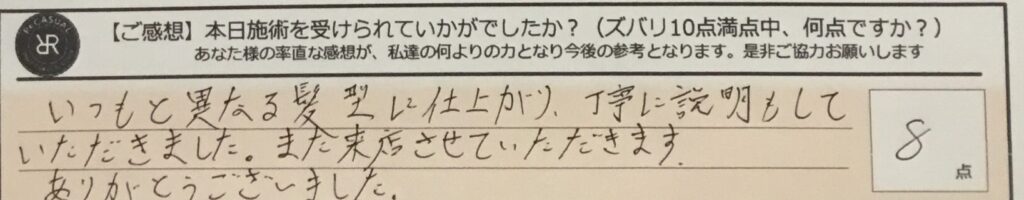 【ご感想】本日施術を受けられていかがでしたか？（ズバリ10点満点中、何点ですか？）
あなた様の率直な感想が、私達の何よりの力となり今後の参考となります。是非ご協力お願いします
いつもと異なる髪型に仕上がり、丁寧に説明もして
いただきました。また来店させていただきます
ありがとうございました。
8
点